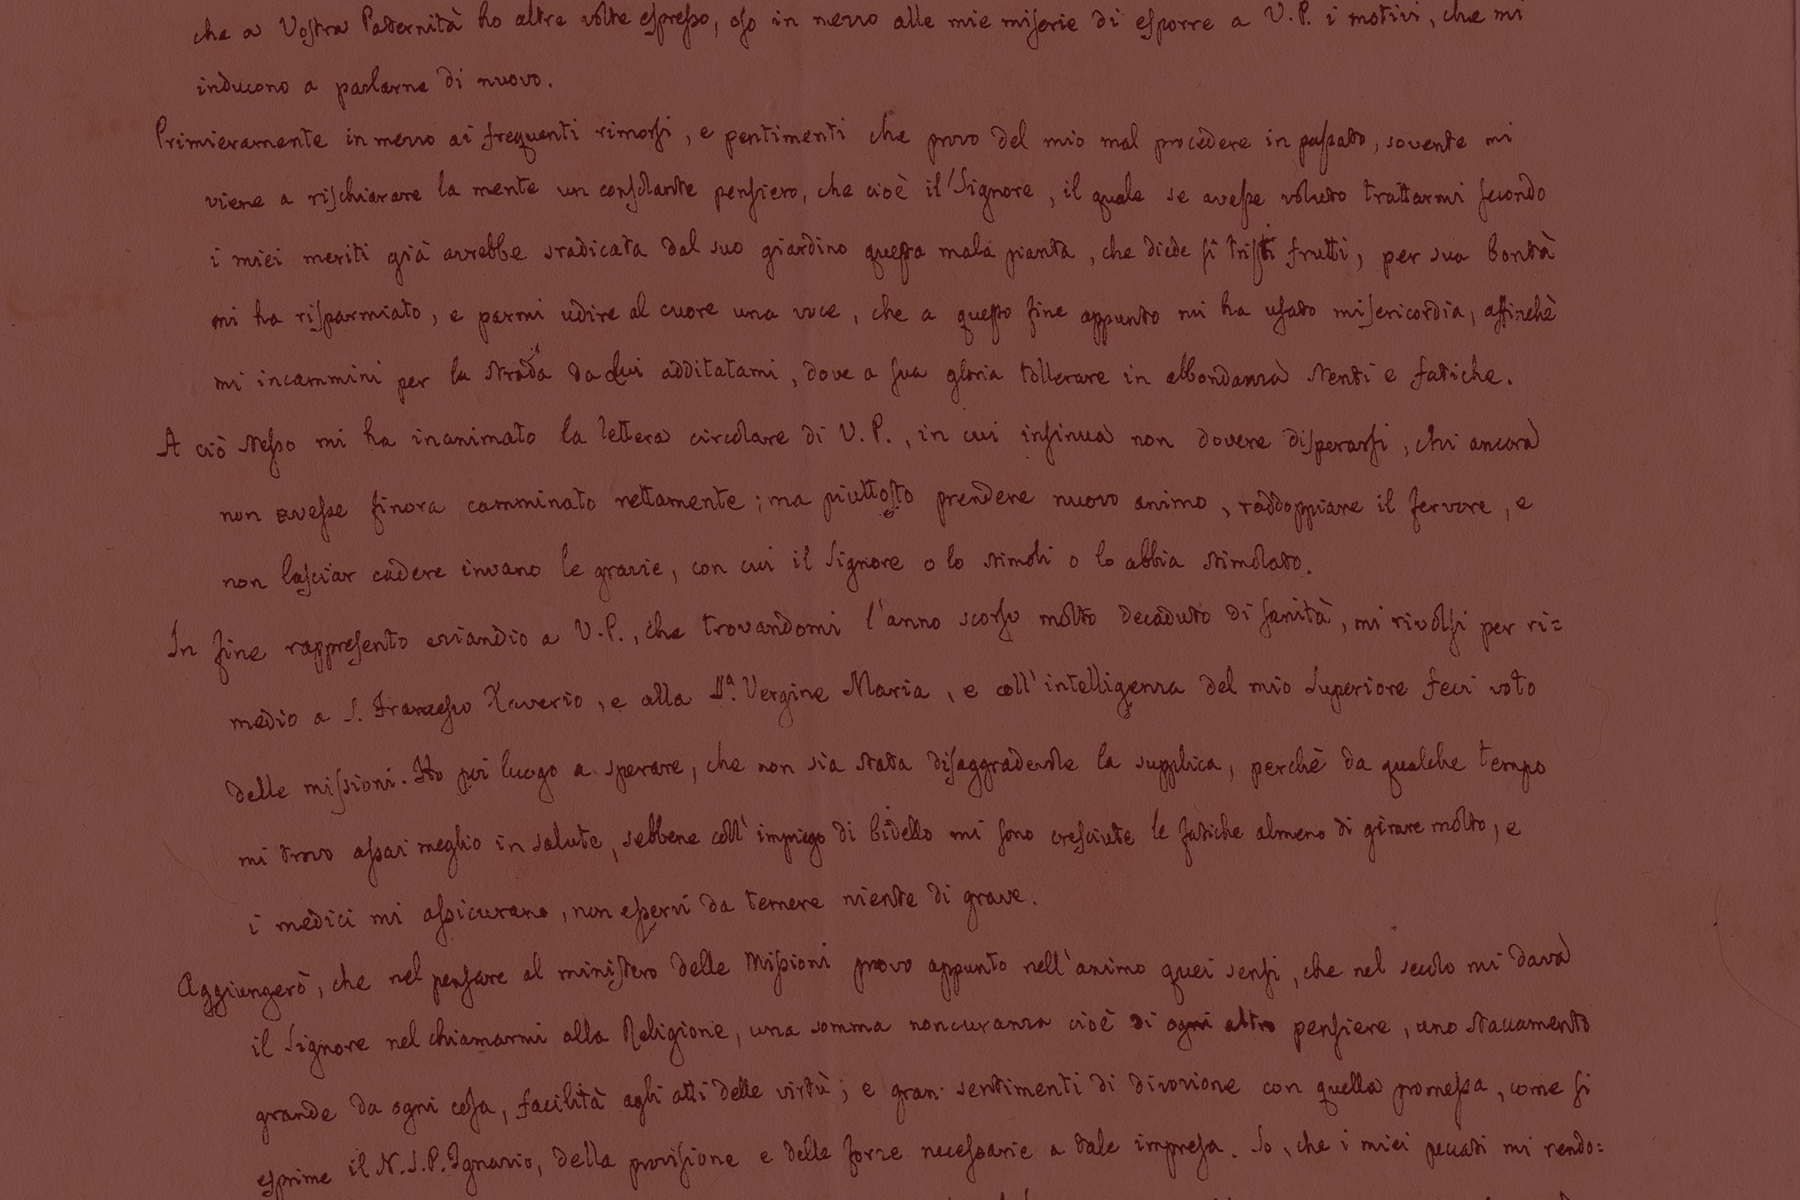 che a Vostra Paternità ho altre volte espresso, oso in mezzo alle mie miserie di esporre a V.P. i motivi, che mi
inducono a parlarne di nuovo.
Primieramente in mezzo ai frequenti rimorsi, e pentimenti che provo del mio mal procedere in passato, sovente mi
viene a rischiarare la mente un consolante pensiero, che cioè il Signore, il quale se avesse voluto trattarmi secondo
i miei meriti già avrebbe sradicata dal suo giardino questa mala pianta, che diede sì tristi frutti, per sua bontà
mi ha risparmiato, e parmi udire al cuore una voce, che a questo fine appunto mi ha usato misericordia, affinchè
mi incammini per la strada da lui additatami, dove a sua gloria tollerare in abbondanza stenti e fatiche.
A ciò stesso mi ha inanimato la lettera circolare di V.P., in cui insinua non dovere disperarsi, chi ancora
non avesse finora camminato rettamente; ma piuttosto prendere nuovo animo, raddoppiare il fervore, e
non lasciar cadere invano le grazie, con cui il Signore o lo stimoli o lo abbia stimolato.
In fine rappresento eziandio a V.P., che trovandomi l'anno scorso molto decaduto di sanità, mi rivolsi per ri=
medio a S. Francesco Xaverio, e alla Sª. Vergine Maria, e coll'intelligenza del mio Superiore feci voto
delle missioni. Ho poi luogo a sperare, che non sia stata disaggradevole la supplica, perchè da qualche tempo
mi trovo assai meglio in salute, sebbene coll'impiego di bidello mi sono cresciute le fatiche almeno di girare molto, e
i medici mi assicurano, non esservi da temere niente di grave.
Aggiungerò, che nel pensare al ministero delle Missioni provo appunto nell'animo quei sensi, che nel secolo mi dava
il Signore nel chiamarmi alla Religione, una somma noncuranza cioè di ogni altro pensiere, uno staccamento
grande da ogni cosa, facilità agli atti delle virtù; e gran sentimenti di divozione con quella promessa, come si
esprime il N.S.P. Ignazio, della provisione e delle forze necessarie a tale impresa. So, che i miei peccati mi rendo=